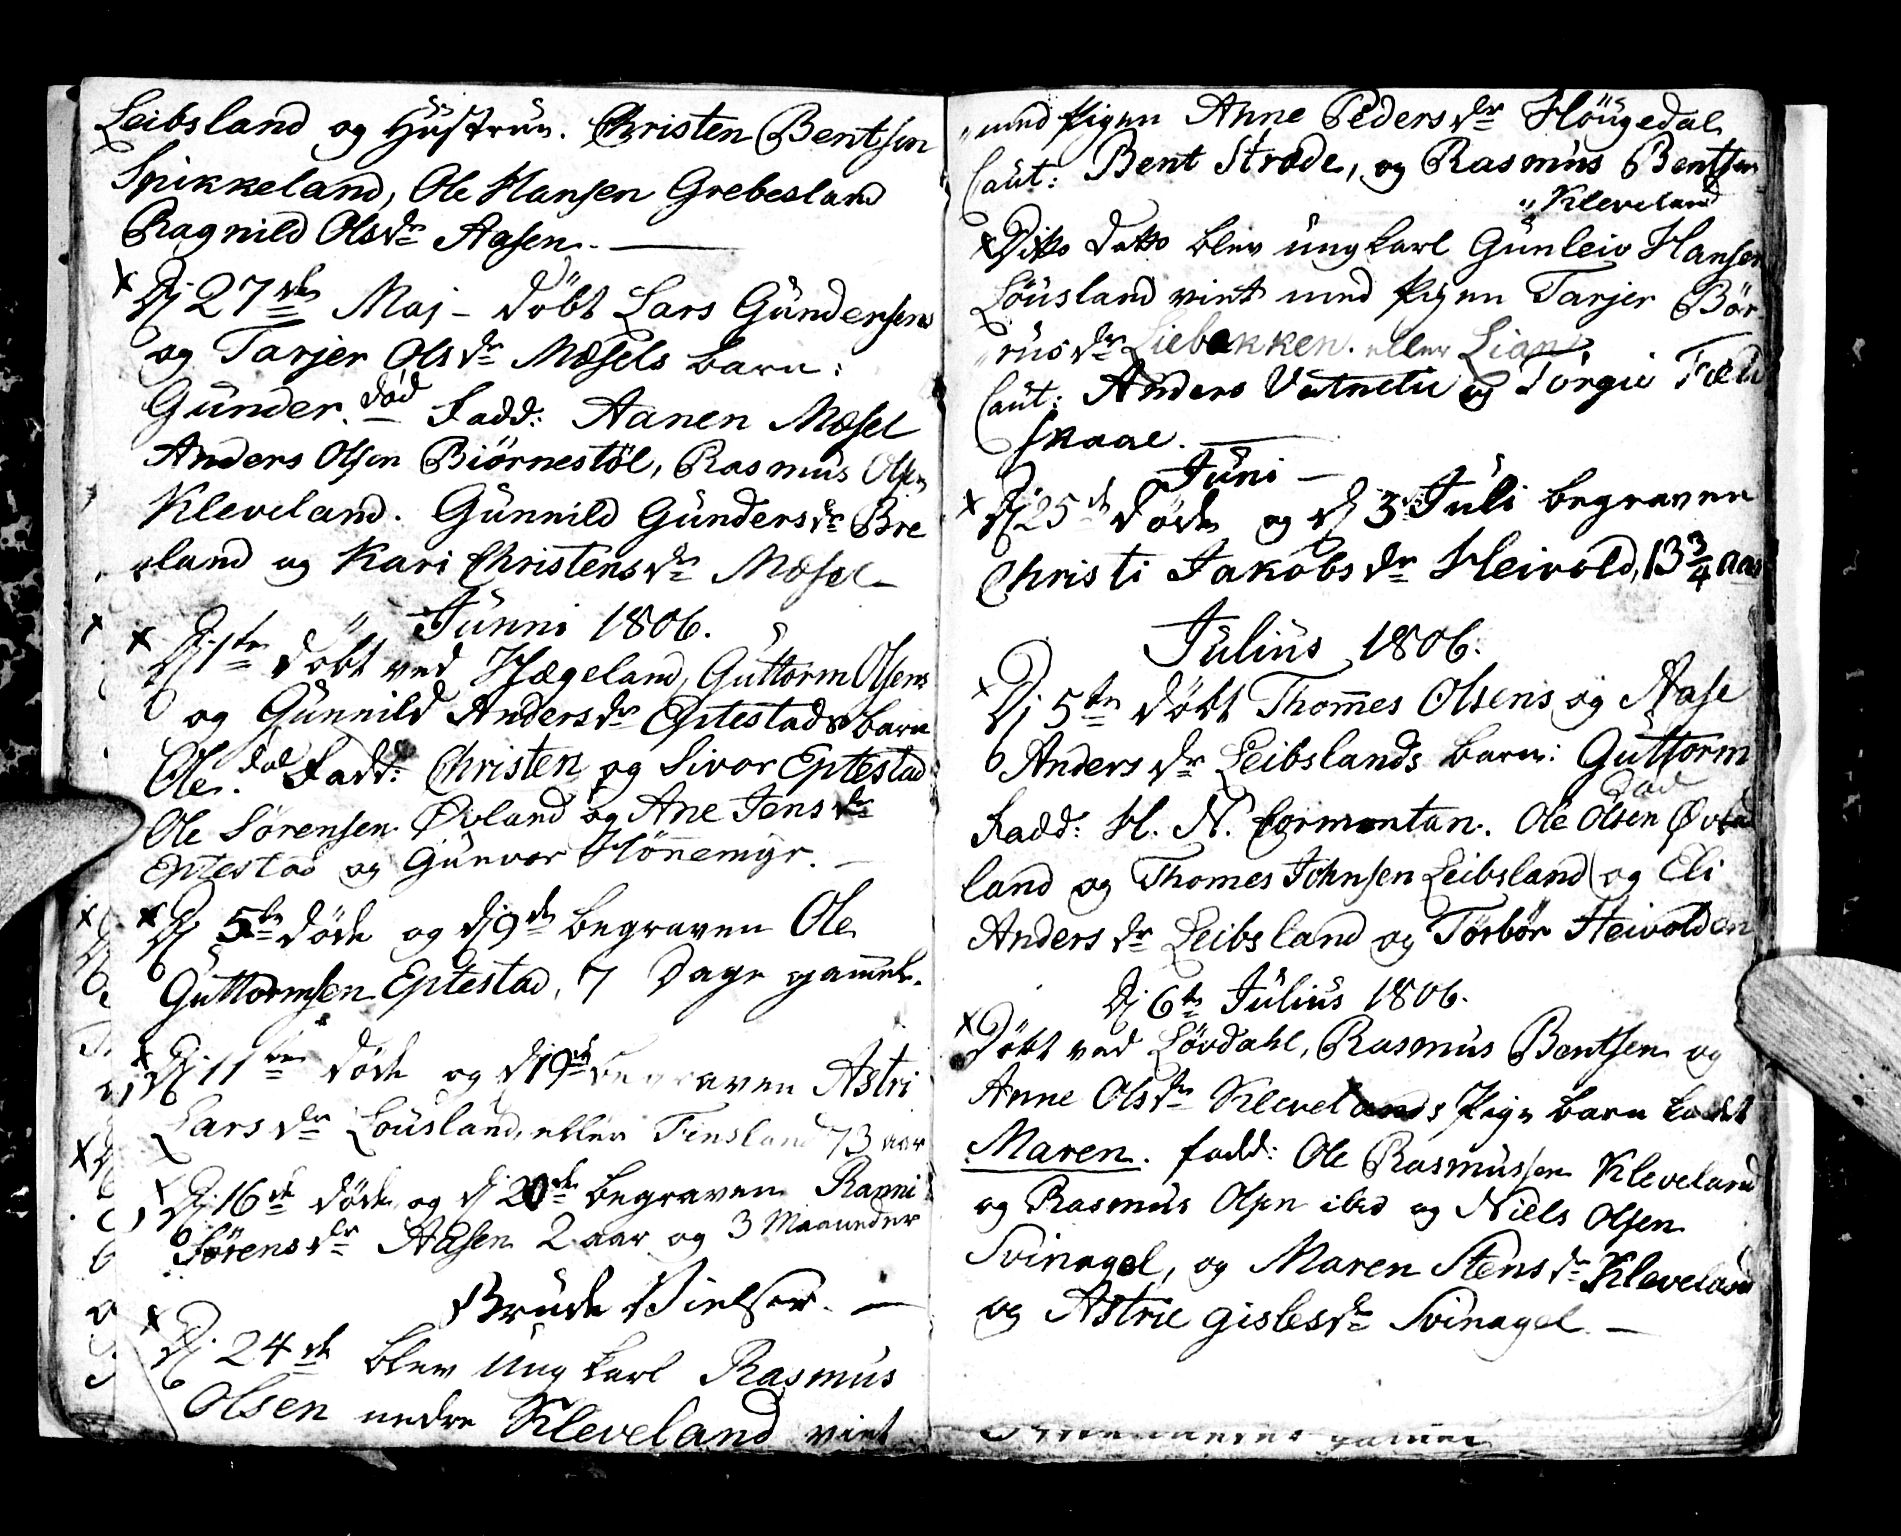 Leibsland og Hustrue. Christen Bentsen
Spikkeland, Ole Hansen Grebesland
Ragnild Olsdr Aasen.
Dj 27de Maj - döbt Lars Gundersens
og Tarjer Olsdr Mæsels barn:
Gunder. död Fadd: Aanen Mæsel
Anders Olsen Biörnestöl, Rasmus Olsen
Kleveland. Gunnild Gundersdr Bre
land og Kari Christensdr Mæsel
Junni 1806.
Dj 1te döbt ved Hægeland, Guttorm Olsens
og Gunnild Andersdr Eptestads barn
Ole. död Fadd: Christen og Sivor Eptestad
Ole Sörensen Øvland og Ane Jensdr
Eptestad og Gunvor Hönnemyr.
Dj 5te döde og dj 9de begraven Ole
Guttormsen Eptestad, 7 Dage gamel.
Dj 11te döde og dj 19de begraven Astri
Larsdr Lousland, eller Finsland 73 aar
Dj 16de döde og dj 20de begraven Ranni
Sörensdr Aasen 2 aar og 3 Maaneder
Brude Vielser.
Dj 24de blev Ung karl Rasmus
Olsen nedre Kleveland viet
med Pigen Anne Pedersdr Höugedal
Caut: Bent Strøde, og Rasmus Bentsen
Kleveland
Ditto Datto blev ungkarl Gunleiv Hansen
Löusland viet med Pigen Tarjer Bör
rusdr Liebakken. eller Lian
Caut: Anders Vatnelie og Torgie Fæld
skaae.
Juni
Dj 25de döde og dj 3 Juli begraven
Christi Jakobsdr Heivold, 13 3/4 aar
Julius 1806.
Dj 5te döbt Thom̄es Olsens og Aase
Andersdr Leibslands barn: Guttorm
död
Fadd: H. N. Cormontan. Ole Olsen Øve
land og Thomes Johnsen Leibsland og Eli
Andersdr Leibsland og Törbör Heivolden
Dj 6te Julius 1806.
Döbt ved Lövdahl, Rasmus Bentsen og
Anne Olsdr Klevelands Pige barn kaldet
Maren. fadd: Ole Rasmussen Kleveland
og Rasmus Olsen ibid og Niels Olsen
Svinagel, og Maren Stensdr Kleveland
og Astrie Gislesdr Svinagel.